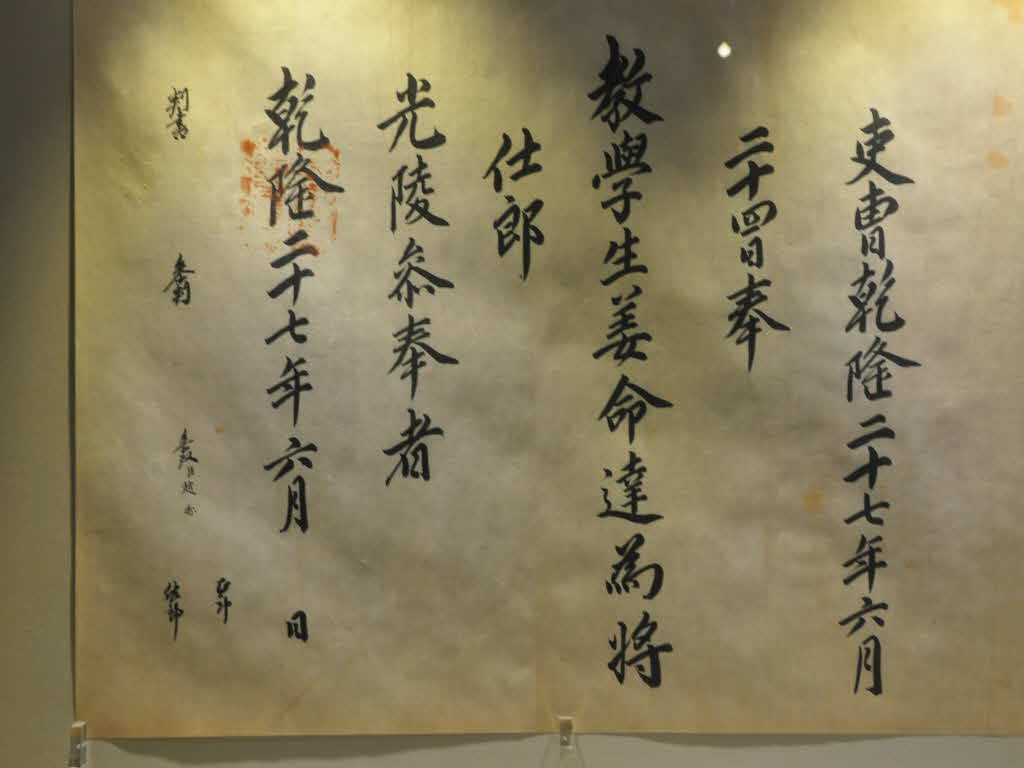 吏曹乾隆二十七年六月
二十四日奉
教學生姜命達爲將
仕郎
光陵叅奉者
乾隆二十七年六月 日
判書 叅判 叅議 正郎
佐郎